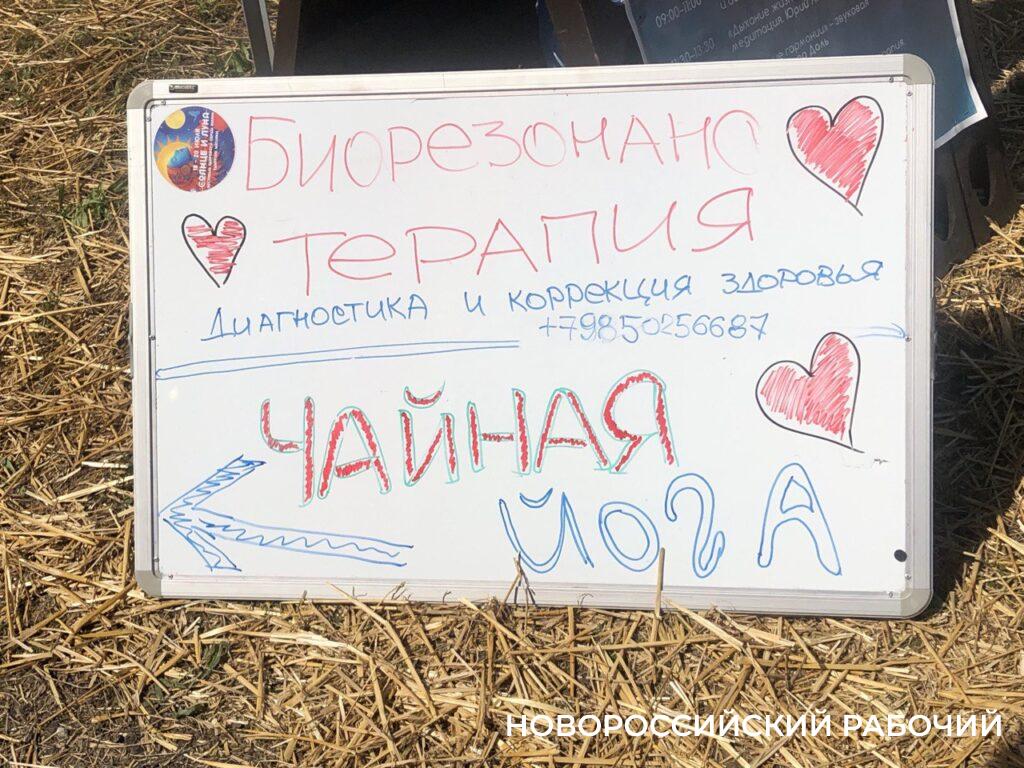 09:00-11:00
«Дыхание
медитация. Юрий
гармонии - звуковая
Даль
18 - 20 ИЮЛЯ
СОЛНЦЕ И ЛУНА
БИОРЕЗОНАНС
ТЕРАПИЯ
ДИАГНОСТИКА И КОРРЕКЦИЯ ЗДОРОВЬЯ
+79850256687
ЧАЙНАЯ
ЙОГА
НОВОРОССИЙСКИЙ РАБОЧИЙ